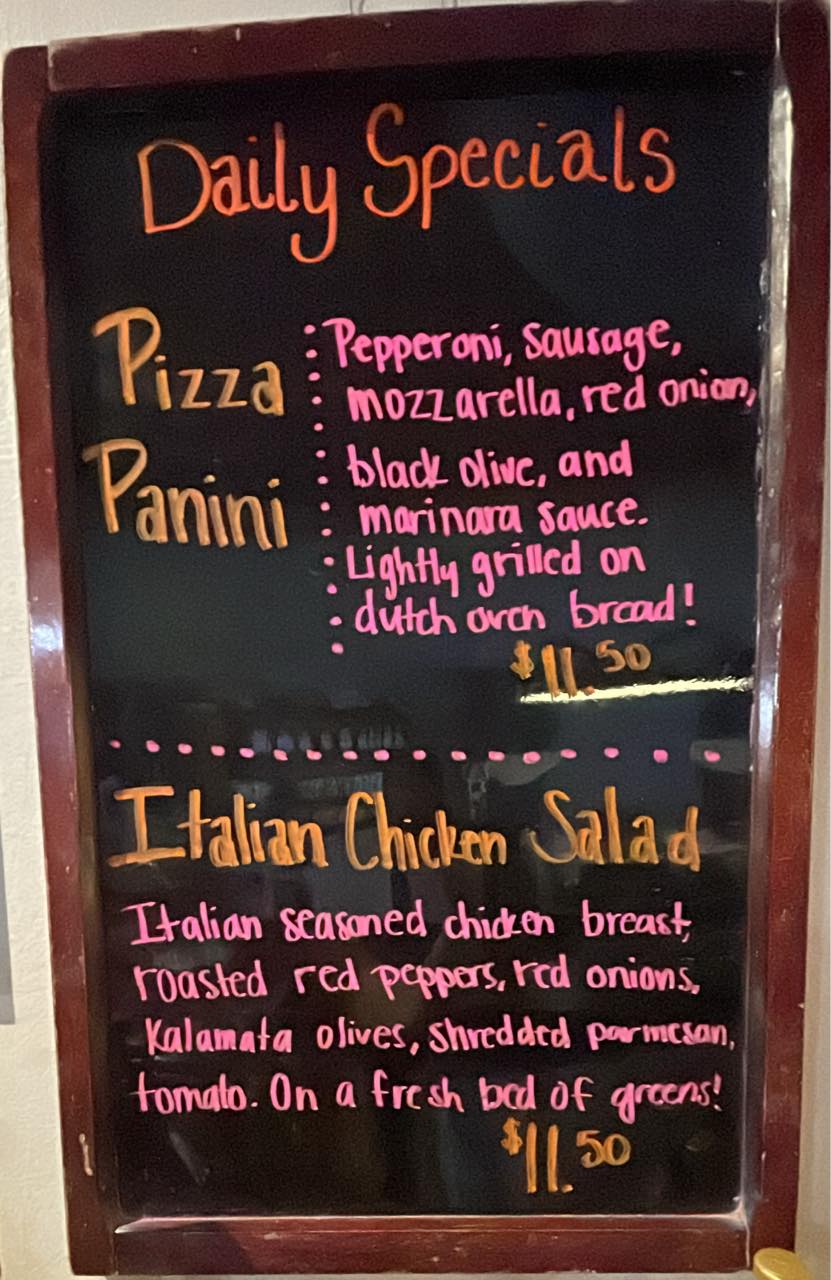 Daily Specials
Pizza
Panini
Pepperoni, sausage,
mozzarella, red onion,
black olive, and
marinara sauce.
Lightly grilled on
dutch oven bread!
$11.50
Italian Chicken Salad
Italian seasoned chicken breast,
roasted red peppers, red onions,
Kalamata olives, shredded parmesan,
tomato. On a fresh bed of greens!
$11.50